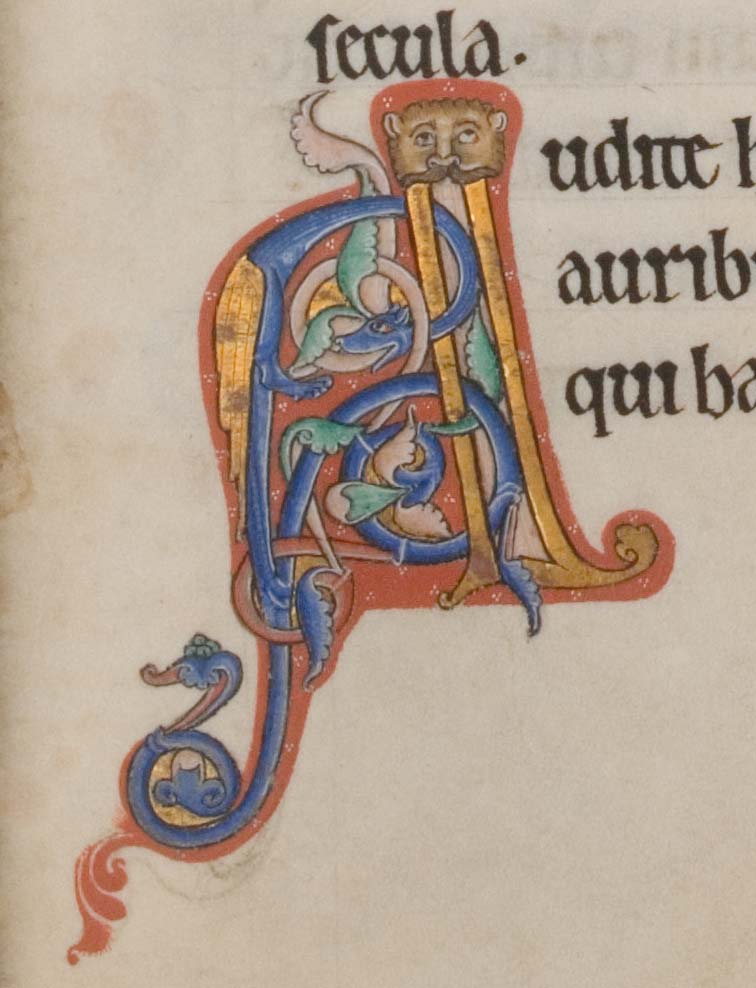 secula.
Audite h
auribu
qui ba